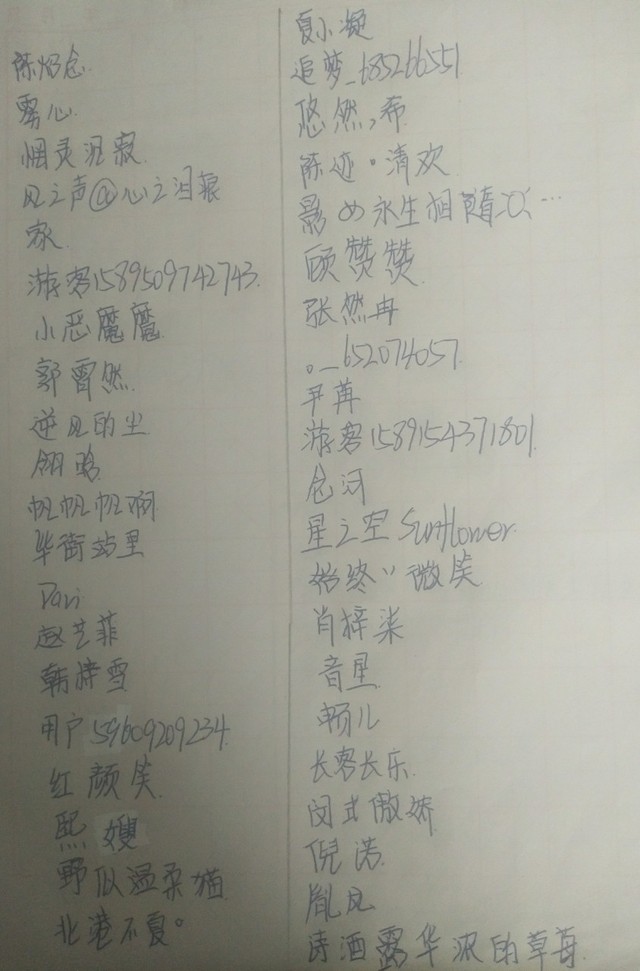 雾心
烟灵沼寂
风之声@心之泪痕
家
游客1589509742743.
小恶魔魔
郭霄然.
逆风的尘
翎鸣
帆帆帆啊
华街站里
Dari
赵艺菲
韩梓雪
用户59609209234.
红颜笑
熙嫂
野似温柔猫
北港不夏。
夏小凝
追梦_685266551
悠然,希
陈迹·清欢
影め永生相随
顾赞赞
张然冉
。_652074057.
尹苒
游客1589154371801.
念河
星之空Sunflower.
始终丷微笑
肖梓柒
音星
畅儿
长客长乐
闵式傲娇
倪诺
胤风
诗酒露华浓的草莓